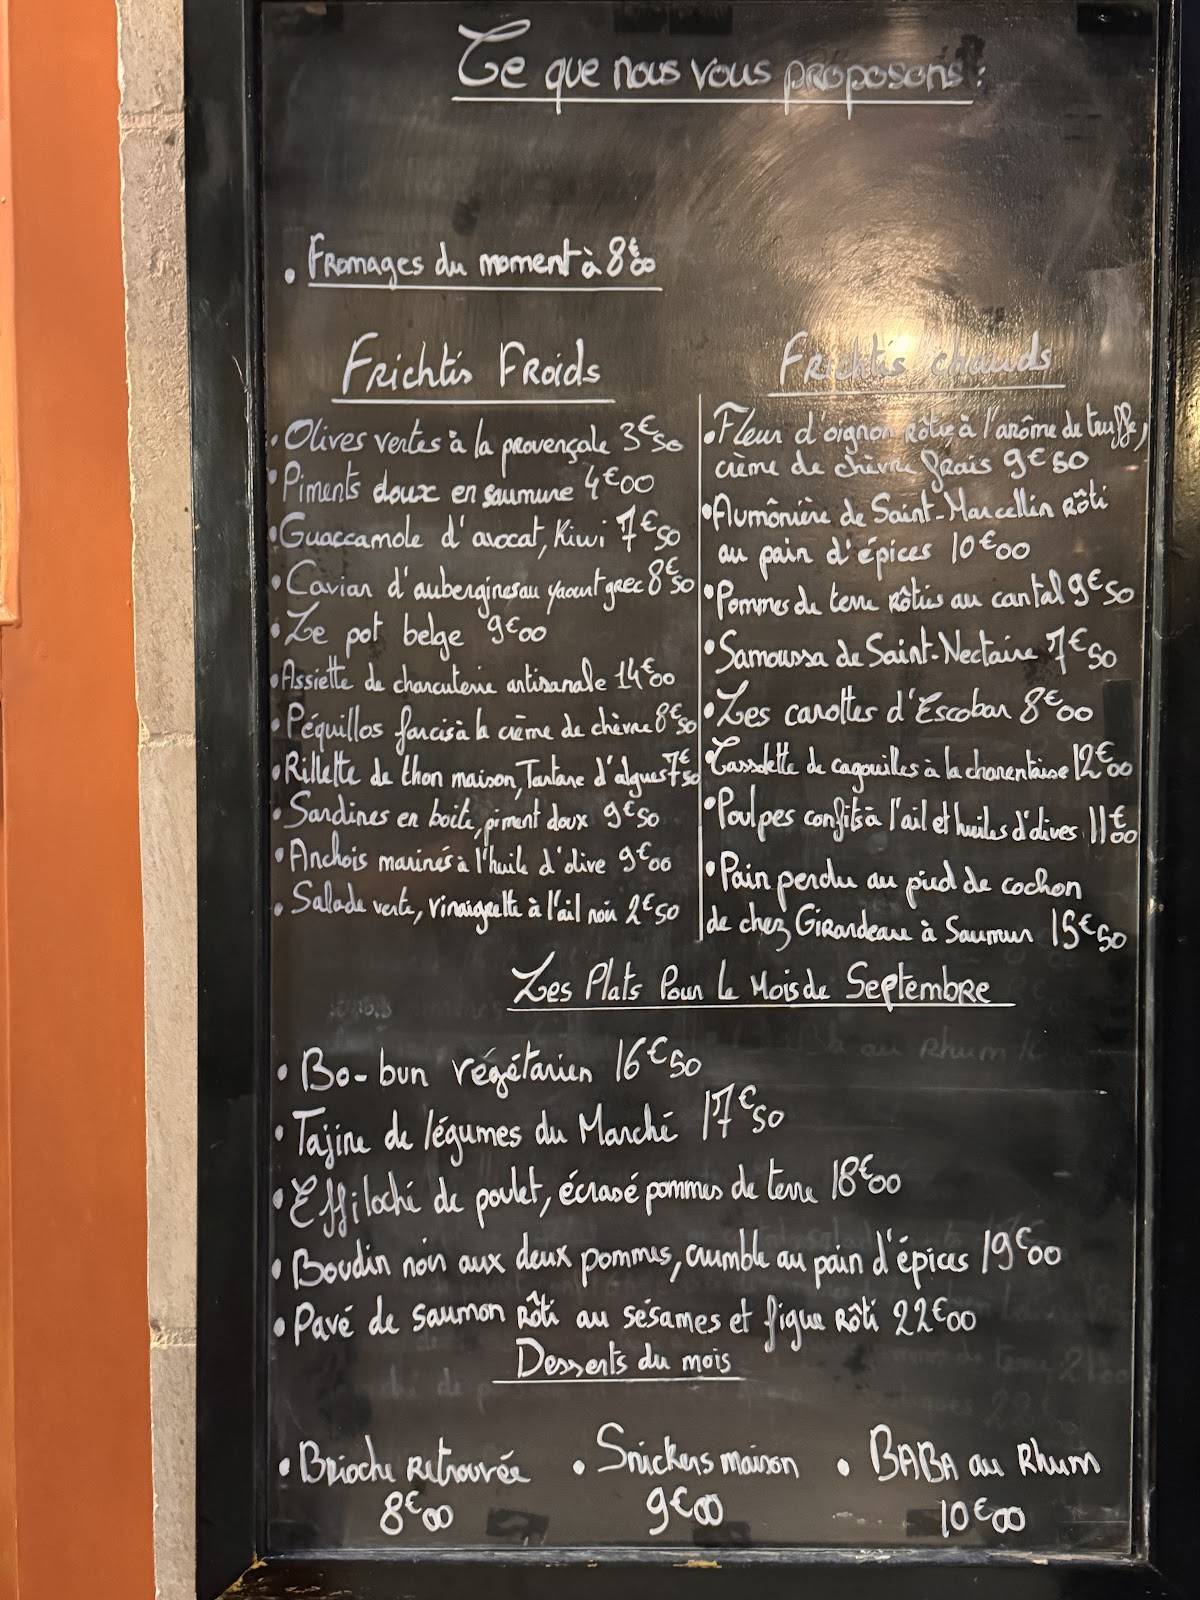 Ce que nous vous proposons :
• Fromages du moment à 8€00
Frichtis Froids
• Olives vertes à la provençale 3€50
• Piments doux en saumure 4€00
• Guaccamole d'avocat, Kiwi 7€50
• Caviar d'aubergines au yaourt grec 8€50
• Le pot belge 9€00
• Assiette de charcuterie artisanale 14€00
• Péquillos farcis à la crème de chèvre 8€50
• Rillette de thon maison, Tartare d'algues 7€50
• Sardines en boite, piment doux 9€50
• Anchois marinés à l'huile d'olive 9€00
• Salade verte, vinaigrette à l'ail noir 2€50
Frichtis chauds
• Fleur d'oignon rôtie à l'arôme de truffe,
crème de chèvre frais 9€50
• Aumônière de Saint-Marcellin rôti
au pain d'épices 10€00
• Pommes de terre rôties au cantal 9€50
• Samoussa de Saint-Nectaire 7€50
• Les carottes d'Escobar 8€00
• Cassolette de cagouilles à la charentaise 12€00
• Poulpes confits à l'ail et huiles d'olives 11€00
• Pain perdu au pied de cochon
de chez Girardeau à Saumur 15€50
Les Plats Pour le Mois de Septembre
• Bo-bun végétarien 16€50
• Tajine de légumes du Marché 17€50
• Effiloché de poulet, écrasé pommes de terre 18€00
• Boudin noir aux deux pommes, crumble au pain d'épices 19€00
• Pavé de saumon rôti au sésames et figue rôti 22€00
Desserts du mois
• Brioche retrouvée • Snickers maison • BABA au Rhum
8€00 9€00 10€00